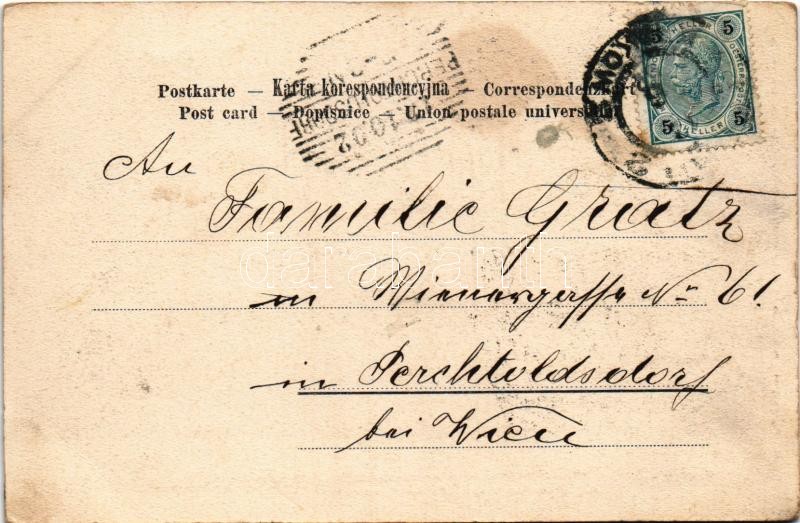 Postkarte – Karta korespondencyjna – Correspondenzkarte
Post card – Dopisnice – Union postale universelle
5 HELLER 5
5 HELLER 5
An
Familie Gratz
in Wienergasse No 61.
in Perchtoldsdorf
bei Wien
darabanth